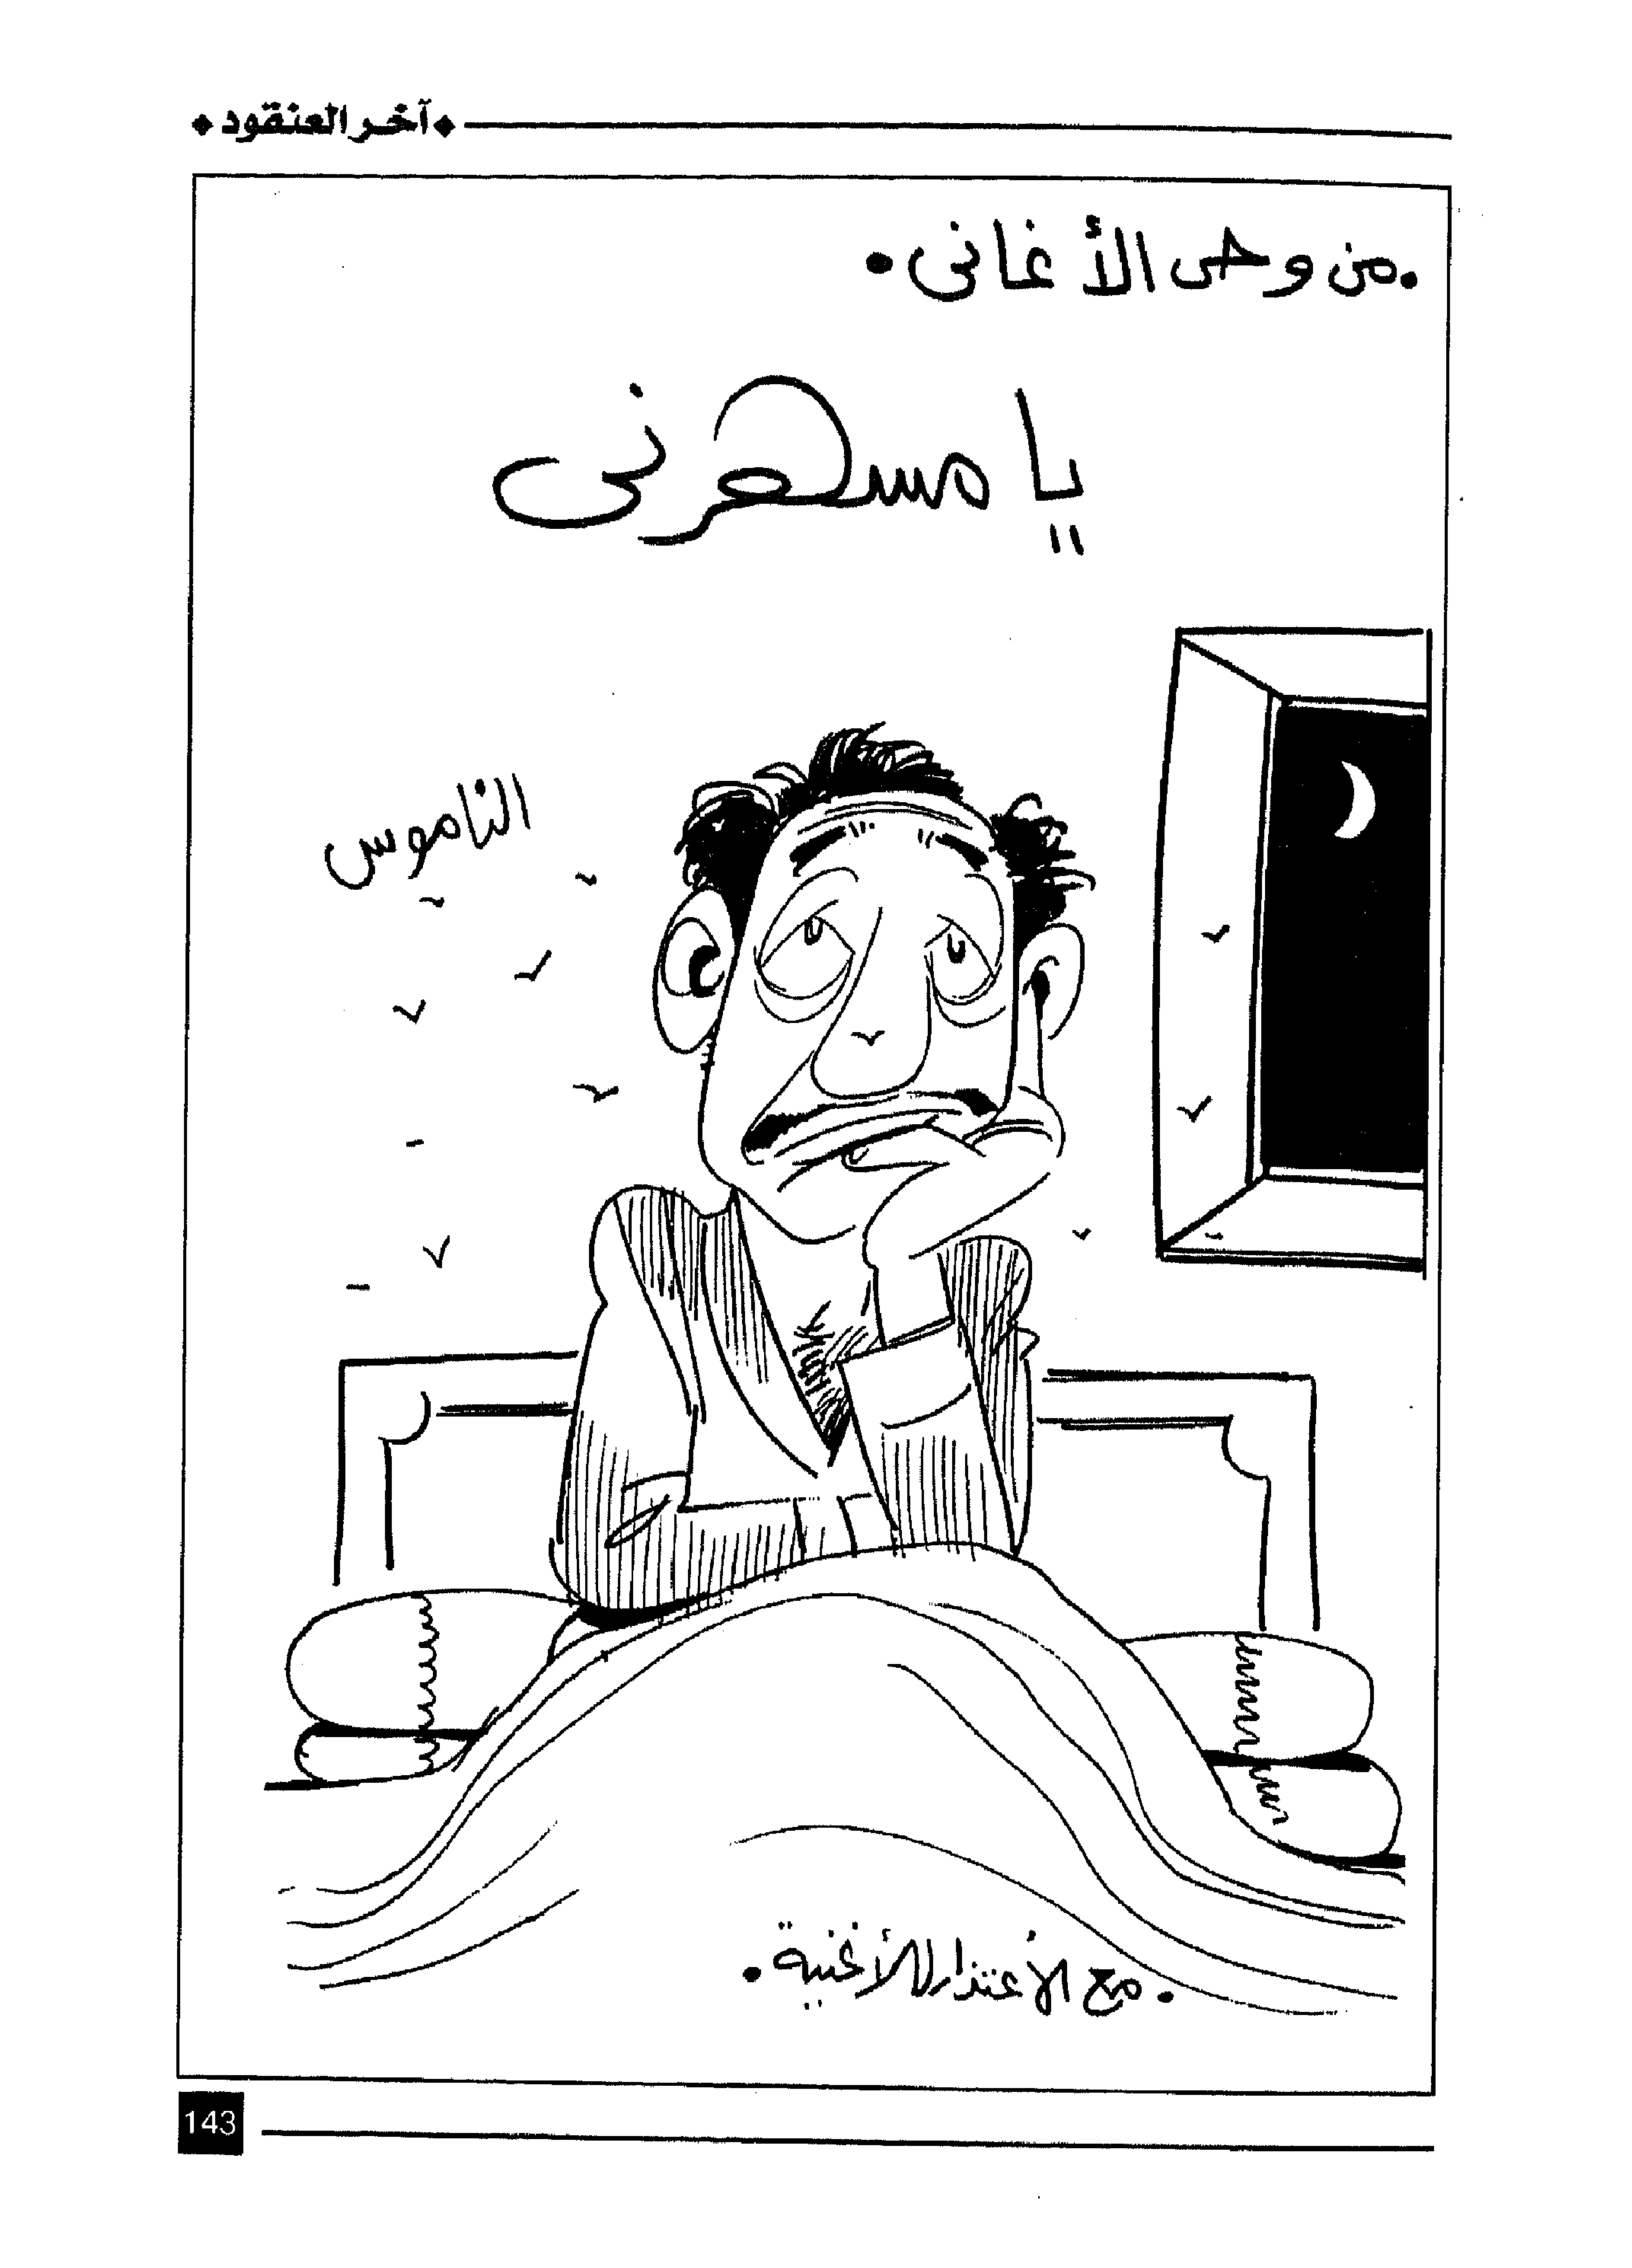 آخر العنقود
من وحى الأغانى
يا مسهرنى
الناموس
مع الأعتذار للأغنية
143